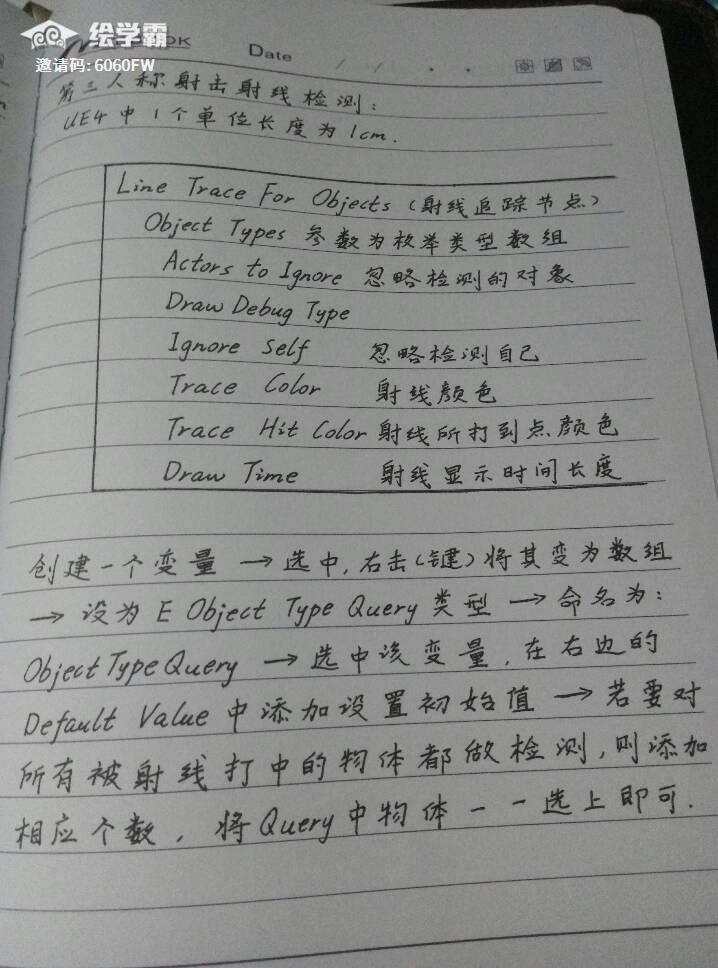 绘学霸
邀请码:6060FW
OK
Date / / . .
第三人称射击射线检测:
UE4中1个单位长度为1cm.
Line Trace For Objects (射线追踪节点)
Object Types 参数为枚举类型数组
Actors to Ignore 忽略检测的对象
Draw Debug Type
Ignore Self 忽略检测自己
Trace Color 射线颜色
Trace Hit Color 射线所打到点颜色
Draw Time 射线显示时间长度
创建一个变量 → 选中,右击(键)将其变为数组
→ 设为 E Object Type Query 类型 → 命名为:
ObjectTypeQuery → 选中该变量,在右边的
Default Value 中添加设置初始值 → 若要对
所有被射线打中的物体都做检测,则添加
相应个数,将Query中物体一一选上即可.